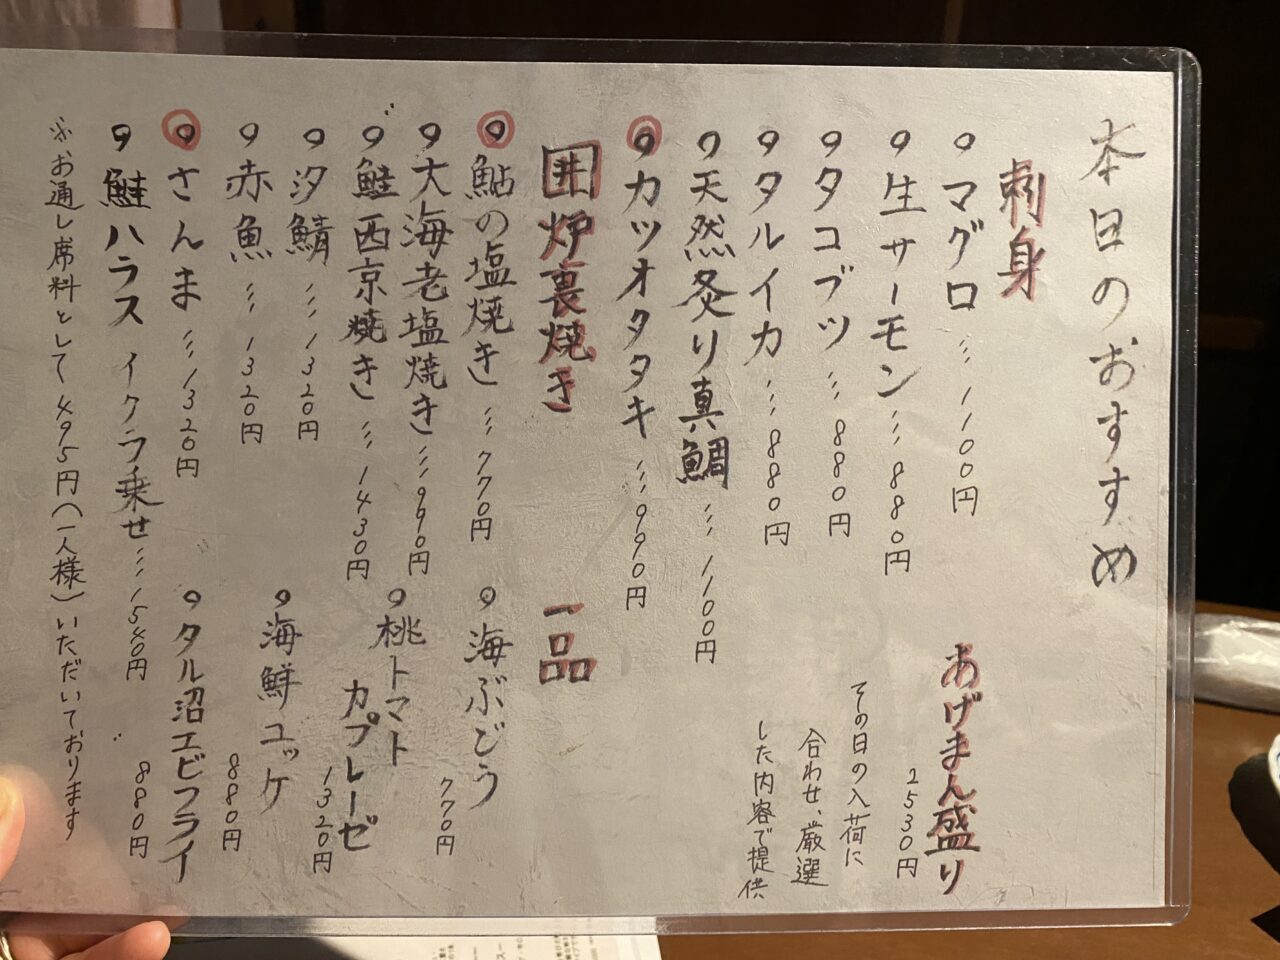 本日のおすすめ
刺身
マグロ … 1100円
生サーモン … 880円
タコブツ … 880円
タルイカ … 880円
天然炙り真鯛 … 1100円
カツオタタキ … 990円
あげまん盛り
2530円
その日の入荷に
合わせ、厳選
した内容で提供
囲炉裏焼き
鮎の塩焼き … 770円
大海老塩焼き … 990円
鮭西京焼き … 1430円
汐鯖 … 1320円
赤魚 … 1320円
さんま … 1320円
鮭ハラス イクラ乗せ … 1540円
一品
海ぶどう
770円
桃トマト
カプレーゼ
1320円
海鮮ユッケ
880円
タル沼エビフライ
880円
※お通し席料として495円(一人様)いただいております